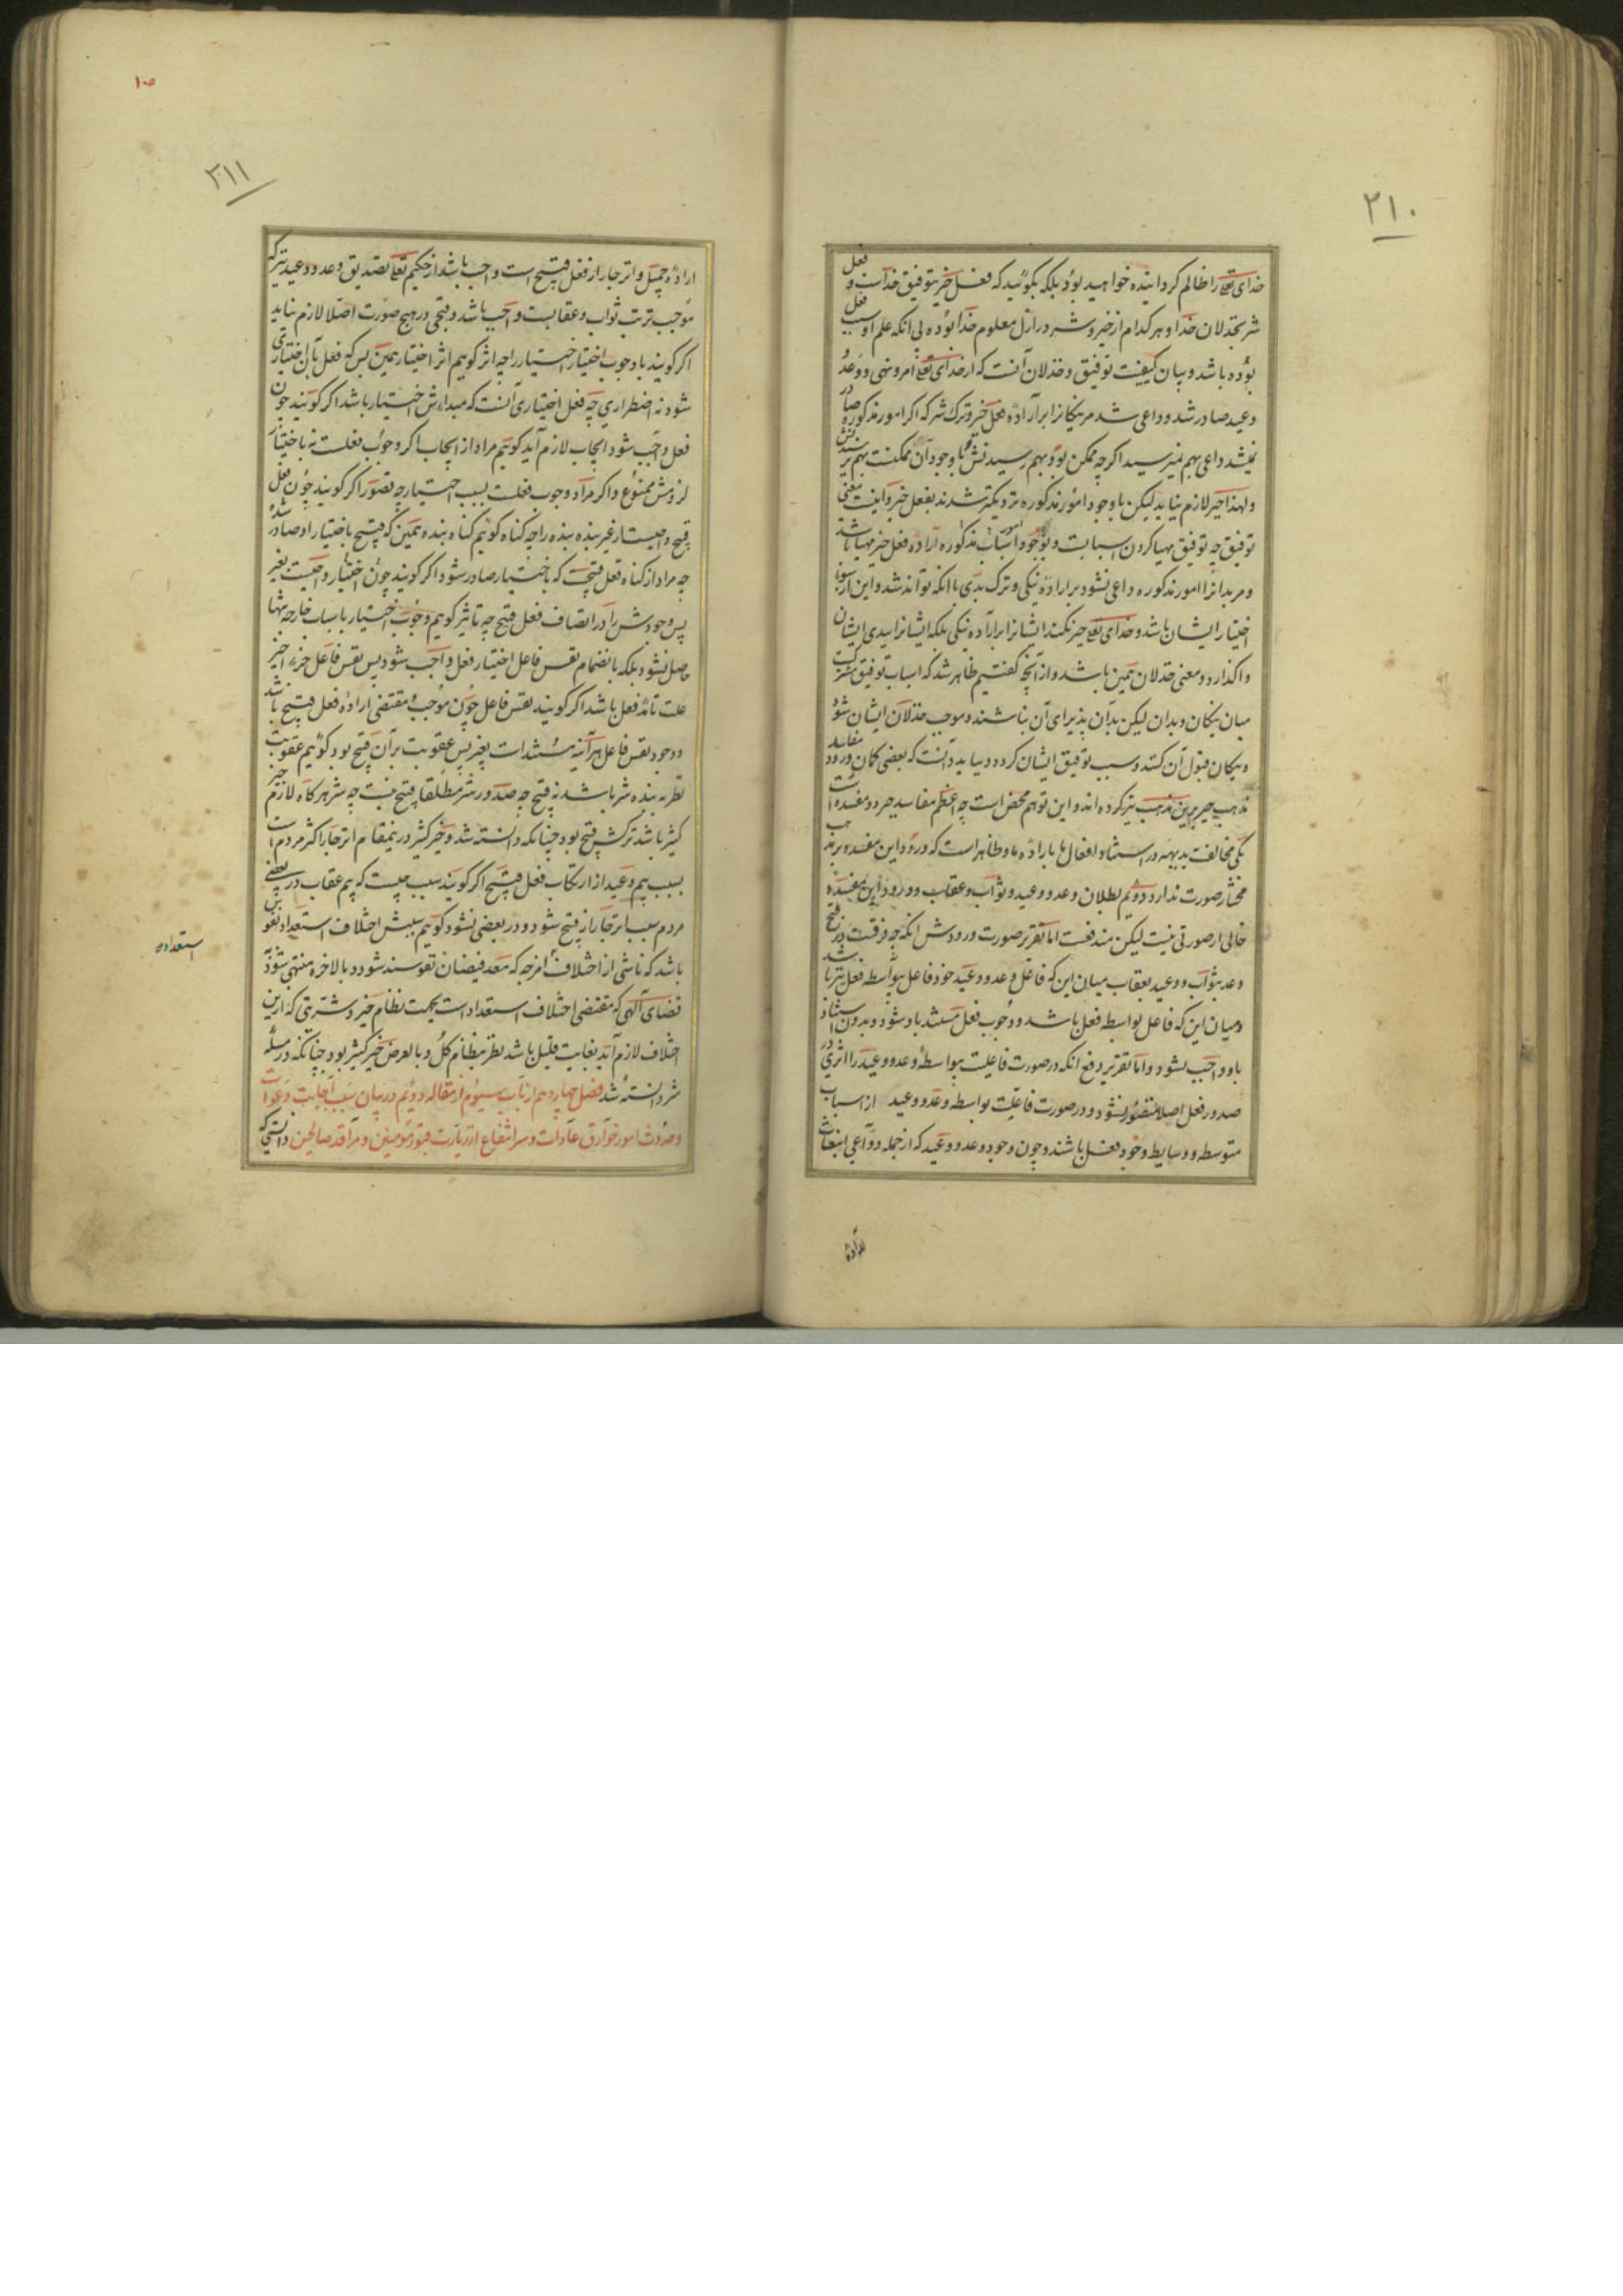 ۲۱۰
خدای تعالی را ظالم کرداینده خواهید بود بلکه بگوئید که فعل خیر بتوفیق خداست و فعل
شر بخذلان خدا و هر کدام از خیر و شر در ازل معلوم خدا بوده بی آنکه علم او سبب فعل
بوده باشد و بیان کیفیت توفیق و خذلان آنست که از خدای تعالی امر و نهی و وعد
وعید صادر شد و داعی شد مر نیکانرا بر ارادهٔ فعل خیر و ترک شر که اگر امور مذکوره صادر
نمیشد داعی بهم نمیرسید اگرچه ممکن بود بهم رسیدنش با وجود آن ممکنست بهم نرسیدنش
ولهذا جبر لازم نیاید لیکن با وجود امور مذکوره نزدیکتر شدند بفعل خیر و اینست معنی
توفیق چه توفیق مهیا کردن اسبابست و بوجود اسباب مذکوره ارادهٔ فعل خیر مهیا باشد
و مر بدانرا امور مذکوره داعی نشود بر ارادهٔ نیکی و ترک بدی با آنکه تواند شد و این از سوء
اختیار ایشان باشد و خدای تعالی جبر نکند ایشانرا بر ارادهٔ نیکی بلکه ایشانرا بیدی ایشان
واگذارد و معنی خذلان همین باشد و از آنچه گفتیم ظاهر شد که اسباب توفیق مشترکست
میان نیکان و بدان لیکن بدان پذیرای آن نباشند و موجب خذلان ایشان شود
و نیکان قبول آن کنند و سبب توفیق ایشان کردد و بباید دانست که بعضی کمان ورود مفاسد
مذهب جبر برین مذهب نیز کرده اند و این توهم محض است چه اعظم مفاسد جبر دو مفسده است
یکی مخالفت بدیهه در استناد افعال ما باراده ما و ظاهر است که ورود این مفسده بر مذهب
مختار صورت ندارد دوئم بطلان وعد و وعید و ثواب و عقاب و ورود این مفسده
خالی از صورتی نیست لیکن مندفعست اما تقریر صورت ورودش آنکه چه فرقست در قبح
وعد بثواب و وعید بعقاب میان این که فاعل وعد و وعید خود فاعل بیواسطه فعل نیز باشد
و میان این که فاعل بواسطه فعل باشد و وجوب فعل مستند باو شود و بدون استناد
باو واجب نشود و اما تقریر دفع آنکه در صورت فاعلیت بیواسطه وعد و وعید را اثری در
صدور فعل اصلا متصور نشود و در صورت فاعلیت بواسطه وعد و وعید از اسباب
متوسطه و وسایط وجود فعل باشند و چون وجود وعد و وعید که از جمله دواعی انبعاث
اراده
۱۰۵
۲۱۱
ارادهٔ جمیل و انزجار از فعل قبیح است واجب باشد از حکیم تعالی تصدیق وعد و وعید نیز که
موجب ترتب ثواب و عقابست واجب باشد و قبحی در هیچ صورت اصلا لازم نیاید
اگر گویند با وجوب اختیار اختیار را چه اثر گوئیم اثر اختیار همین بس که فعل بآن اختیاری
شود نه اضطراری چه فعل اختیاری آنست که مبداءش اختیار باشد اگر گویند چون
فعل واجب شود ایجاب لازم آید گوئیم مراد از ایجاب اگر وجوب فعلست نه باختیار
لزومش ممنوع و اگر مراد وجوب فعلست بسبب اختیار چه تصور اگر گویند چون فعل
قبیح واجبست از غیر بنده بنده را چه گناه گوئیم گناه بنده همین که قبیح باختیار او صادر شده
چه مراد از گناه فعل قبیحست که باختیار صادر شود اگر گویند چون اختیار واجبست بغیر
پس وجودش را در اتصاف فعل قبیح چه تاثیر گوئیم وجوب اختیار باسباب خارجه تنها
حاصل نشود بلکه بانضمام نفس فاعل اختیار فعل واجب شود پس نفس فاعل جزء اخیر
علت تامه فعل باشد اگر گویند نفس فاعل چون موجب و مقتضی ارادهٔ فعل قبیح باشد
و وجود نفس فاعل هرآینه مستند است بغیر پس عقوبت بر آن قبیح بود گوئیم عقوبت
نظر به بنده شر باشد نه قبیح چه صدور شر مطلقا قبیح نیست چه شر هرگاه لازم خیر
کثیر باشد ترکش قبیح بود چنانکه دانسته شد و خیر کثیر درینمقام انزجار اکثر مردم است
بسبب بیم وعید از ارتکاب فعل قبیح اگر گویند سبب چیست که بیم عقاب در بعضی
مردم سبب انزجار از قبیح شود و در بعضی نشود گوئیم سببش اختلاف استعداد نفوس
باشد که ناشی از اختلاف امزجه که معد فیضان نفوسند شود و بالاخره منتهی شود به
استعداده
قضای الهی که مقتضی اختلاف استعداد است بجهت نظام خیر و شریتی که ازین
اختلاف لازم آید بغایت قلیل باشد نظر بنظام کل و بالعرض خیر کثیر بود چنانکه در مسئله
شر دانسته شد فصل چهاردهم از باب سیوم از مقاله دوئم در بیان سبب اجابت دعوات
و حدوث امور خوارق عادات و سر انتفاع از زیارت قبور مؤمنین و مراقد صالحین دانستی که